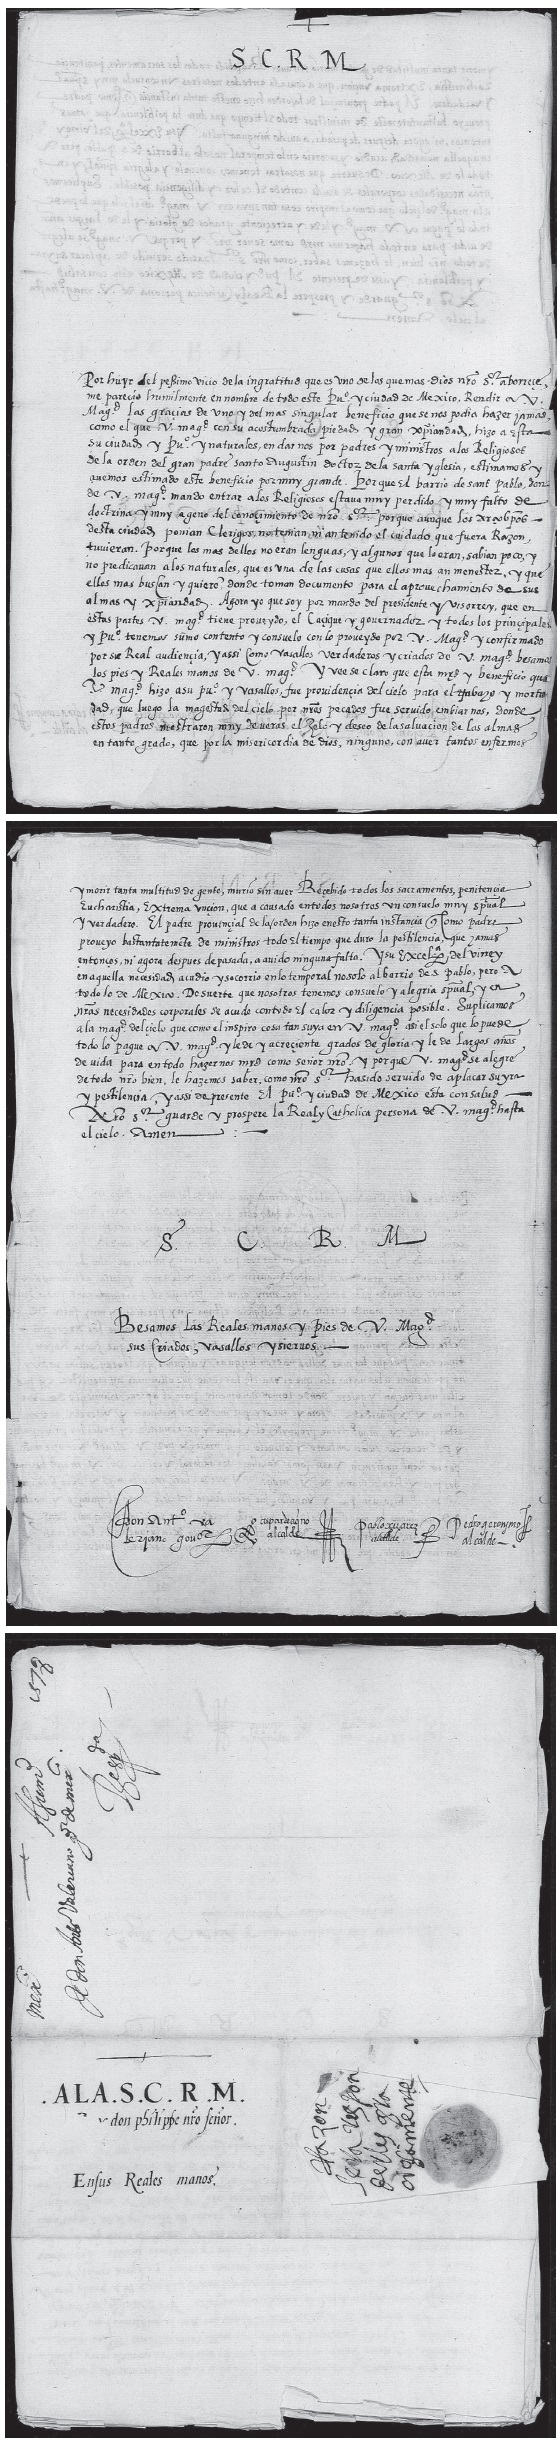 S. C. R. M.
Por huyr del pessimo vicio de la ingratitud que es uno de los que mas dios nro s.or aborrece,
me parecio humilmente en nombre de todo este Pu.o y ciudad de Mexico, Rendir a V.
Mag.d las gracias de uno y del mas singular beneficio que se nos podia hazer jamas,
como el que V. mag.d con su acostumbrada piedad y gran xpiandad, hizo a esta
su ciudad y Pu.o y naturales, en darnos por padres y ministros a los Religiosos
de la orden del gran padre santo Augustin doctor de la santa yglesia, estimamos y
avemos estimado este beneficio por muy grande. Porque El barrio de sant Pablo, don
de V. mag.d mando entrar a los Religiosos estava muy perdido y muy falto de
doctrina y muy ageno del conoscimiento de nro s.or porque aunque los Arçobpos
desta ciudad ponian Clerigos, no tenian ni an tenido el cuidado que fuera Razon,
tuvieran. Porque los mas dellos no eran lenguas, y algunos que lo eran, sabian poco, y
no predicavan a los naturales, que es una de las cosas que ellos mas an menester, y que
ellos mas buscan y quieren donde toman documento para el aprovechamiento de sus
almas y xpiandad. Agora yo que soy por mando del presidente y Visorrey, que en
estas partes V. mag.d tiene proveydo, el Caçique y governador y todos los principales
y Pu.o tenemos sumo contento y consuelo con lo proveydo por V. Mag.d y confirmado
por su Real audiençia, y assi como vasallos verdaderos y criados de V. mag.d besamos
los pies y Reales manos de V. mag.d Y vee se claro que esta mrd y beneficio que
V. mag.d hizo a su pu.o y vasallos, fue providençia del cielo para el trabajo y morta
dad, que luego la magestad del cielo por nros pecados fue servido embiarnos, donde
estos padres mostraron muy de veras el zelo y deseo de la salvacion de las almas
en tanto grado, que por la misericordia de dios, ninguno, con aver tantos enfermos
y morir tanta multitud de gente, murio sin aver Recebido todos los sacramentos, penitençia
Eucharistia, Extrema uncion, que a causado en todos nosotros un consuelo muy spūal
y verdadero. El padre provincial de la orden hizo en esto tanta instancia como padre
proveyo bastantemente de ministros todo El tiempo que duro la pestilencia, que jamas
entonçes, ni agora despues de pasada, a avido ninguna falta. Y su Excel.a del virrey
en aquella necesidad acudio y socorrio en lo temporal no solo al barrio de s. Pablo, pero a
todo lo de Mexico. De suerte que nosotros tenemos consuelo y alegria spūal, y en
nras necesidades corporales se acude con todo El calor y diligencia posible. Suplicamos
a la mag.d del cielo que como el inspiro cosa tan suya en V. mag.d asi el solo que lo puede
todo lo pague a V. mag.d y le de y acreciente grados de gloria y le de largos años
de vida para en todo hazernos mrd como señor nro y porque V. mag.d se alegre
de todo nro bien, le hazemos saber, como nro s.or ha sido servido de aplacar su yra
y pestilencia y assi de presente El pu.o y ciudad de Mexico esta con salud
Nro s.or guarde y prospere la Real y Catholica persona de V. mag.d hasta
el cielo. Amen
S. C. R. M.
Besamos las Reales manos y pies de V. Mag.d
sus Criados, vasallos y siervos
Don Ant.o va
leriano gou.or
alcalde
Pablo xuarez
alcalde
Pedro geronymo
alcalde
mex.co
1578
A su m.d
de don Ant.o Valeriano g.or de mex.co
Resp.da
. A LA . S. C. R .M.
don philippe nro señor.
En sus Reales manos.